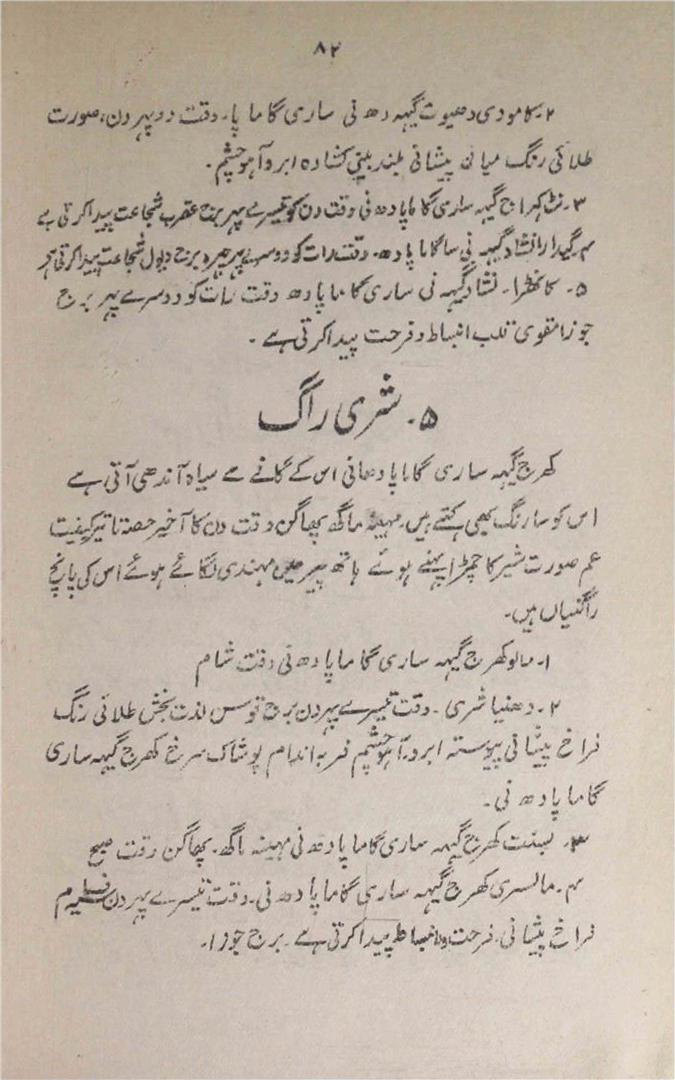 ۸۲
۲۔ کامودی دھیوت گیہہ دھ نی ساری گا ما پا۔ وقت دوپہر دن، صورت
طلائی رنگ میانہ پیشانی بلند بینی کشادہ ابرو آہو چشم۔
۳۔ نٹ کھراج گیہہ ساری گا ما پا دھ نی وقت دن کو تیسرے پہر برج عقرب شجاعت پیدا کرتی ہے
۴۔ کیدارا نشاد گیہہ نی سا گا ما پا دھ۔ وقت رات کو دوسرے پہر برج شجاعت پیدا کرتی ہے
۵۔ کانھڑا۔ نشاد گیہہ نی ساری گا ما پا دھ وقت رات کو دوسرے پہر برج
جوزا مقوی قلب انبساط و فرحت پیدا کرتی ہے۔
۵۔ شری راگ
کھرج گیہہ ساری گا ما پا دھا نی اس کے گانے سے سیاہ آندھی آتی ہے
اس کو سارنگ بھی کہتے ہیں۔ مہینہ ماگھ پھاگن وقت دن کا آخیر حصہ تاثیر کیفیت
غم صورت شیر کا چمڑا پہنے ہوئے ہاتھ پیر میں مہندی لگائے ہوئے اس کی پانچ
راگنیاں ہیں۔
۱۔ مالو کھرج گیہہ ساری گا ما پا دھ نی وقت شام
۲۔ دھنیا شری۔ وقت تیسرے پہر دن برج قوس لذت بخش طلائی رنگ
فراخ پیشانی پیوستہ ابرو۔ آہو چشم فربہ اندام پوشاک سرخ کھرج گیہہ ساری
گا ما پا دھ نی۔
۳۔ بسنت کھرج گیہہ ساری گا ما پا دھ نی مہینہ ماگھ۔ پھاگن وقت صبح
۴۔ مالسری کھرج گیہہ ساری گا ما پا دھ نی۔ وقت تیسرے پہر دن
فراخ پیشانی۔ فرحت و انبساط پیدا کرتی ہے۔ برج جوزا۔